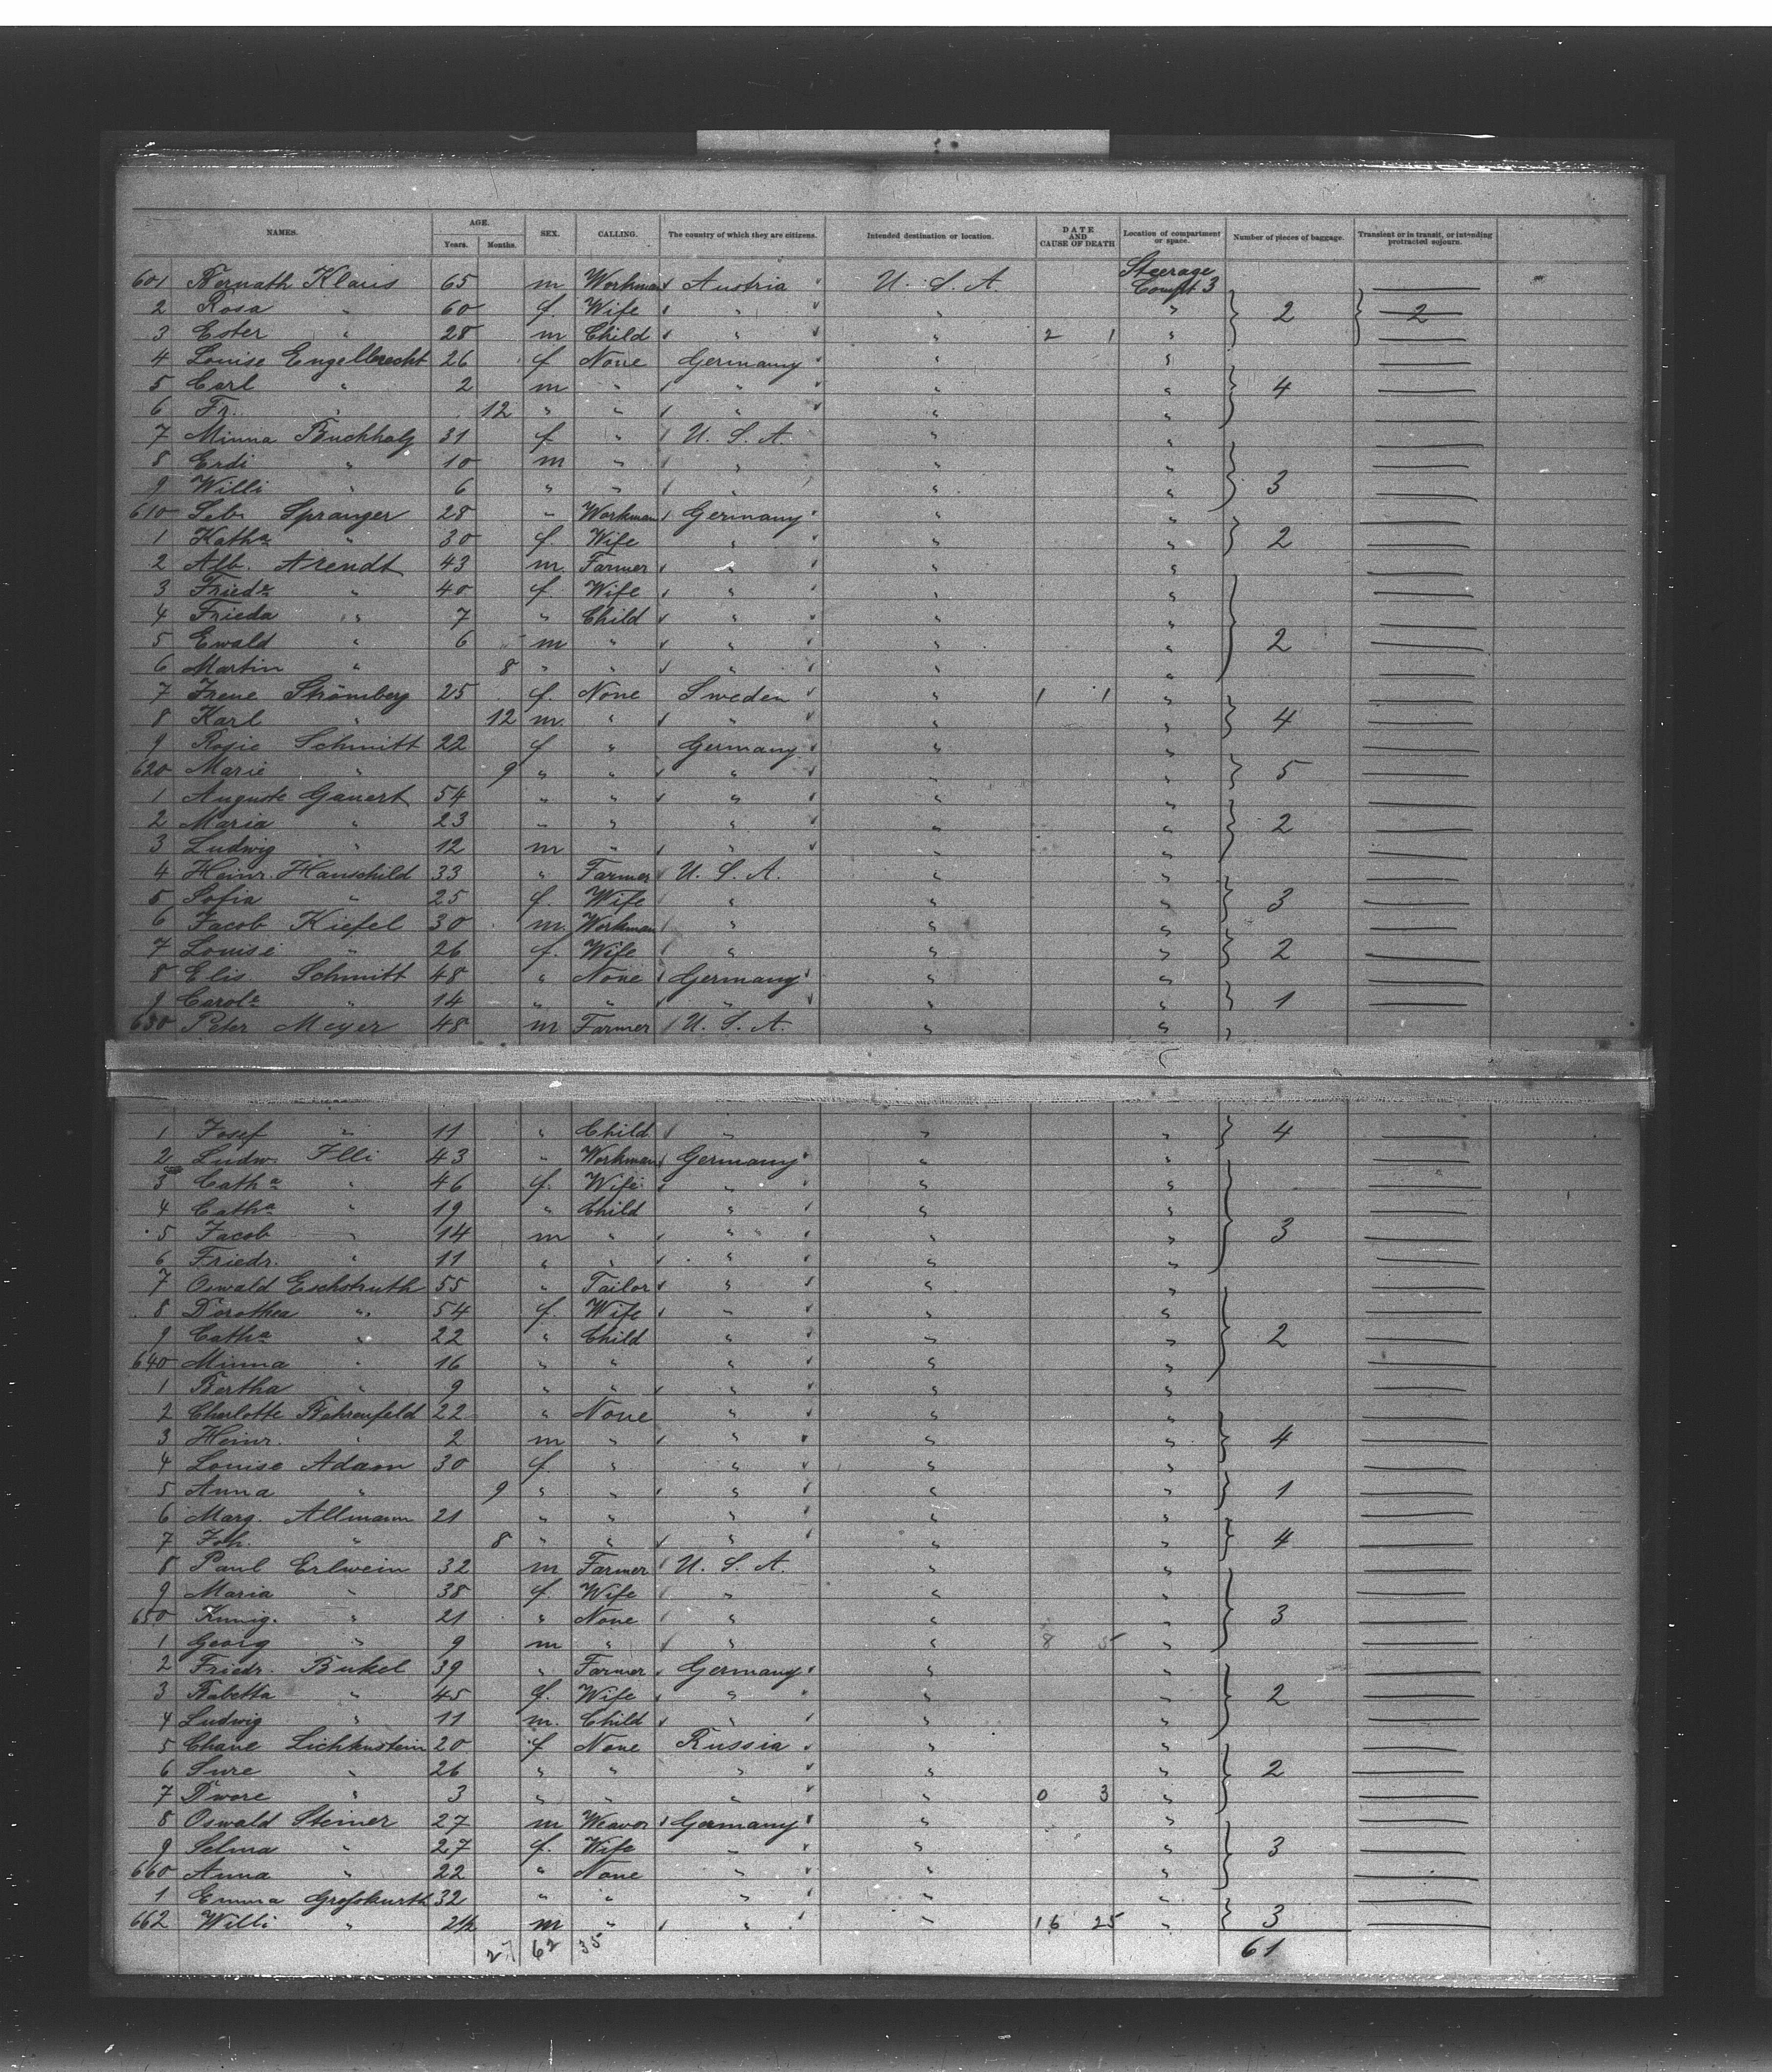 NAMES. AGE. Years. Months. SEX. CALLING. The country of which they are citizens. Intended destination or location. DATE AND CAUSE OF DEATH Location of compartment or space. Number of pieces of baggage. Transient or in transit, or intending protracted sojourn.
601 Bernath Klaris 65 m Workman Austria U. S. A. Steerage Compt 3
2 Rosa " 60 f. Wife " " " 2 2
3 Ester " 28 m Child " " 2 1 "
4 Louise Engelbrecht 26 f None Germany " "
5 Carl " 2 m " " " " 4
6 Fr. " 12 " " " " "
7 Minna Buchholz 31 f " U. S. A. " "
8 Erdi " 10 m " " " "
9 Willi " 6 " " " " " 3
610 Seb. Spranger 28 " Workman Germany " "
1 Katha " 30 f. Wife " " " 2
2 Alb. Arendt 43 m. Farmer " " "
3 Friedr " 40 f. Wife " " "
4 Frieda " 7 " Child " " "
5 Ewald " 6 m " " " " 2
6 Martin " 8 " " " " "
7 Irene Strömberg 25 f. None Sweden " 1 1 "
8 Karl " 12 m. " " " " 4
9 Rosie Schmitt 22 f " Germany " "
620 Marie " 9 " " " " " 5
1 Auguste Ganert 54 " " " " "
2 Maria " 23 " " " " " 2
3 Ludwig " 12 m " " " "
4 Heinr. Hanschild 33 " Farmer U. S. A. " "
5 Sofia " 25 f. Wife " " " 3
6 Jacob Kiefel 30 m. Workman " " "
7 Louise " 26 f. Wife " " " 2
8 Elis. Schmitt 48 " None Germany " "
9 Carola " 14 " " " " " 1
630 Peter Meyer 48 m Farmer U. S. A. " "
1 Josef " 11 " Child " " " 4
2 Ludw. Illi 43 " Workman Germany " "
3 Catha " 46 f. Wife " " "
4 Catha " 19 " Child " " "
5 Jacob " 14 m " " " " 3
6 Friedr. " 11 " " " " "
7 Oswald Eschstruth 55 " Tailor " " "
8 Dorothea " 54 f. Wife " " "
9 Catha " 22 " Child " " " 2
640 Minna " 16 " " " " "
1 Bertha " 9 " " " " "
2 Charlotte Bahrenfeld 22 " None " " "
3 Heinr. " 2 m " " " " 4
4 Louise Adam 30 f. " " " "
5 Anna " 9 " " " " " 1
6 Marg. Allmann 21 " " " " "
7 Joh. " 8 " " " " " 4
8 Paul Erlwein 32 m Farmer U. S. A. " "
9 Maria " 38 f. Wife " " "
650 Kunig. " 21 " None " " " 3
1 Georg " 9 m " " " 8 5 "
2 Friedr. Bukel 39 " Farmer Germany " "
3 Babetta " 45 f. Wife " " " 2
4 Ludwig " 11 m. Child " " "
5 Chane Lichtenstein 20 f None Russia " "
6 Sure " 26 " " " " " 2
7 Dwore " 3 " " " " 0 3 "
8 Oswald Steiner 27 m Weavor Germany " "
9 Selma " 27 f. Wife " " " 3
660 Anna " 22 " None " " "
1 Emma Grosskurth 32 " " " " "
662 Willi " m " " " 16 25 " 3
27 62 35 61